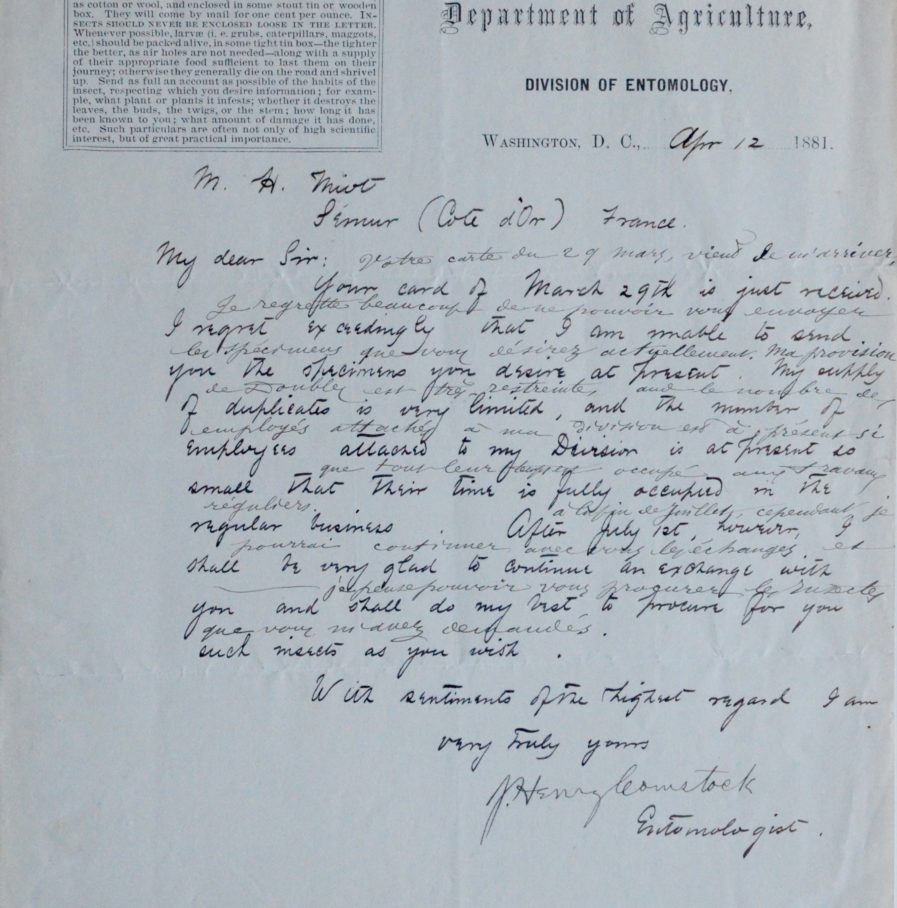 as cotton or wool, and enclosed in some stout tin or wooden
box. They will come by mail for one cent per ounce. IN-
SECTS SHOULD NEVER BE ENCLOSED LOOSE IN THE LETTER.
Whenever possible, larvæ (i. e. grubs, caterpillars, maggots,
etc.) should be packed alive, in some tight tin box—the tighter
the better, as air holes are not needed—along with a supply
of their appropriate food sufficient to last them on their
journey; otherwise they generally die on the road and shrivel
up. Send as full an account as possible of the habits of the
insect, respecting which you desire information; for exam-
ple, what plant or plants it infests; whether it destroys the
leaves, the buds, the twigs, or the stem; how long it has
been known to you; what amount of damage it has done,
etc. Such particulars are often not only of high scientific
interest, but of great practical importance.
Department of Agriculture,
DIVISION OF ENTOMOLOGY.
WASHINGTON, D. C., Apr 12 1881.
M. H. Miot
Sémur (Cote d'Or) France.
My dear Sir: Votre carte du 29 mars, vient de m'arriver,
Your card of March 29th is just received.
Je regrette beaucoup de ne pouvoir vous envoyer
I regret exceedingly that I am unable to send
les spécimens que vous désirez actuellement. Ma provision
you the specimens you desire at present. My supply
de Doubles est très restreinte, and le nombre des
of duplicates is very limited, and the number of
employés attachés à ma division est à présent si
employees attached to my Division is at present so
que tout leur occupé aux travaux
small that their time is fully occupied in the
réguliers. à la fin de Juillet, cependant je
regular business. After July 1st, however, I
pourrai continuer avec vous les échanges et
shall be very glad to continue an exchange with
je pense pouvoir vous procurer les Insectes
you and shall do my best to procure for you
que vous m'avez demandés.
such insects as you wish.
With sentiments of the highest regard I am
very truly yours
J. Henry Comstock
Entomologist.